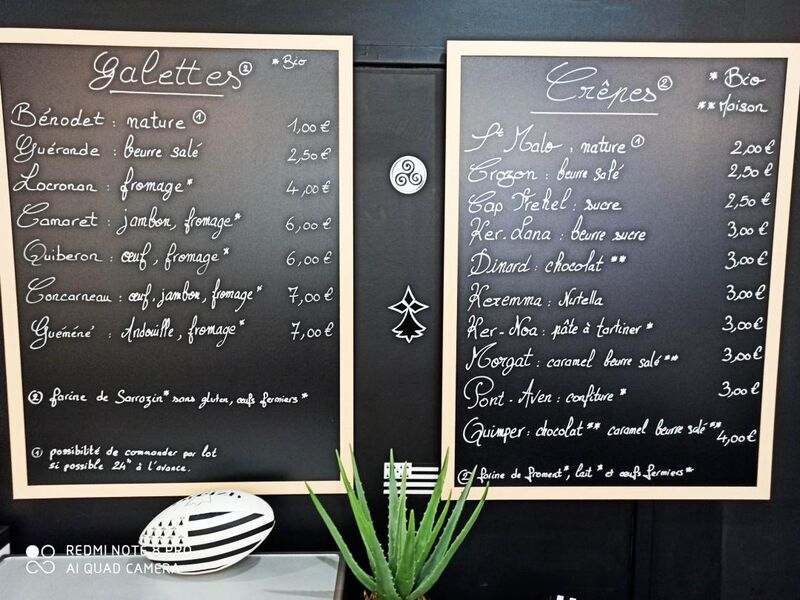 Galettes ② * Bio
Bénodet : nature ① 1,00 €
Guérande : beurre salé 2,50 €
Locronan : fromage * 4,00 €
Camaret : jambon, fromage * 6,00 €
Quiberon : œuf, fromage * 6,00 €
Concarneau : œuf, jambon, fromage * 7,00 €
Guéméné : Andouille, fromage * 7,00 €
② farine de Sarrozin * sans gluten, œufs fermiers *
① possibilité de commander par lot
si possible 24h à l'avance.
Crêpes ② * Bio
** Maison
St Malo : nature ① 2,00 €
Crozon : beurre salé 2,50 €
Cap Frehel : sucre 2,50 €
Ker-Lana : beurre sucre 3,00 €
Dinard : chocolat ** 3,00 €
Keremma : Nutella 3,00 €
Ker-Noa : pâte à tartiner * 3,00 €
Morgat : caramel beurre salé ** 3,00 €
Pont-Aven : confiture * 3,00 €
Quimper : chocolat ** caramel beurre salé ** 4,00 €
② farine de froment *, lait * et œufs fermiers *
REDMI NOTE 8 PRO
AI QUAD CAMERA